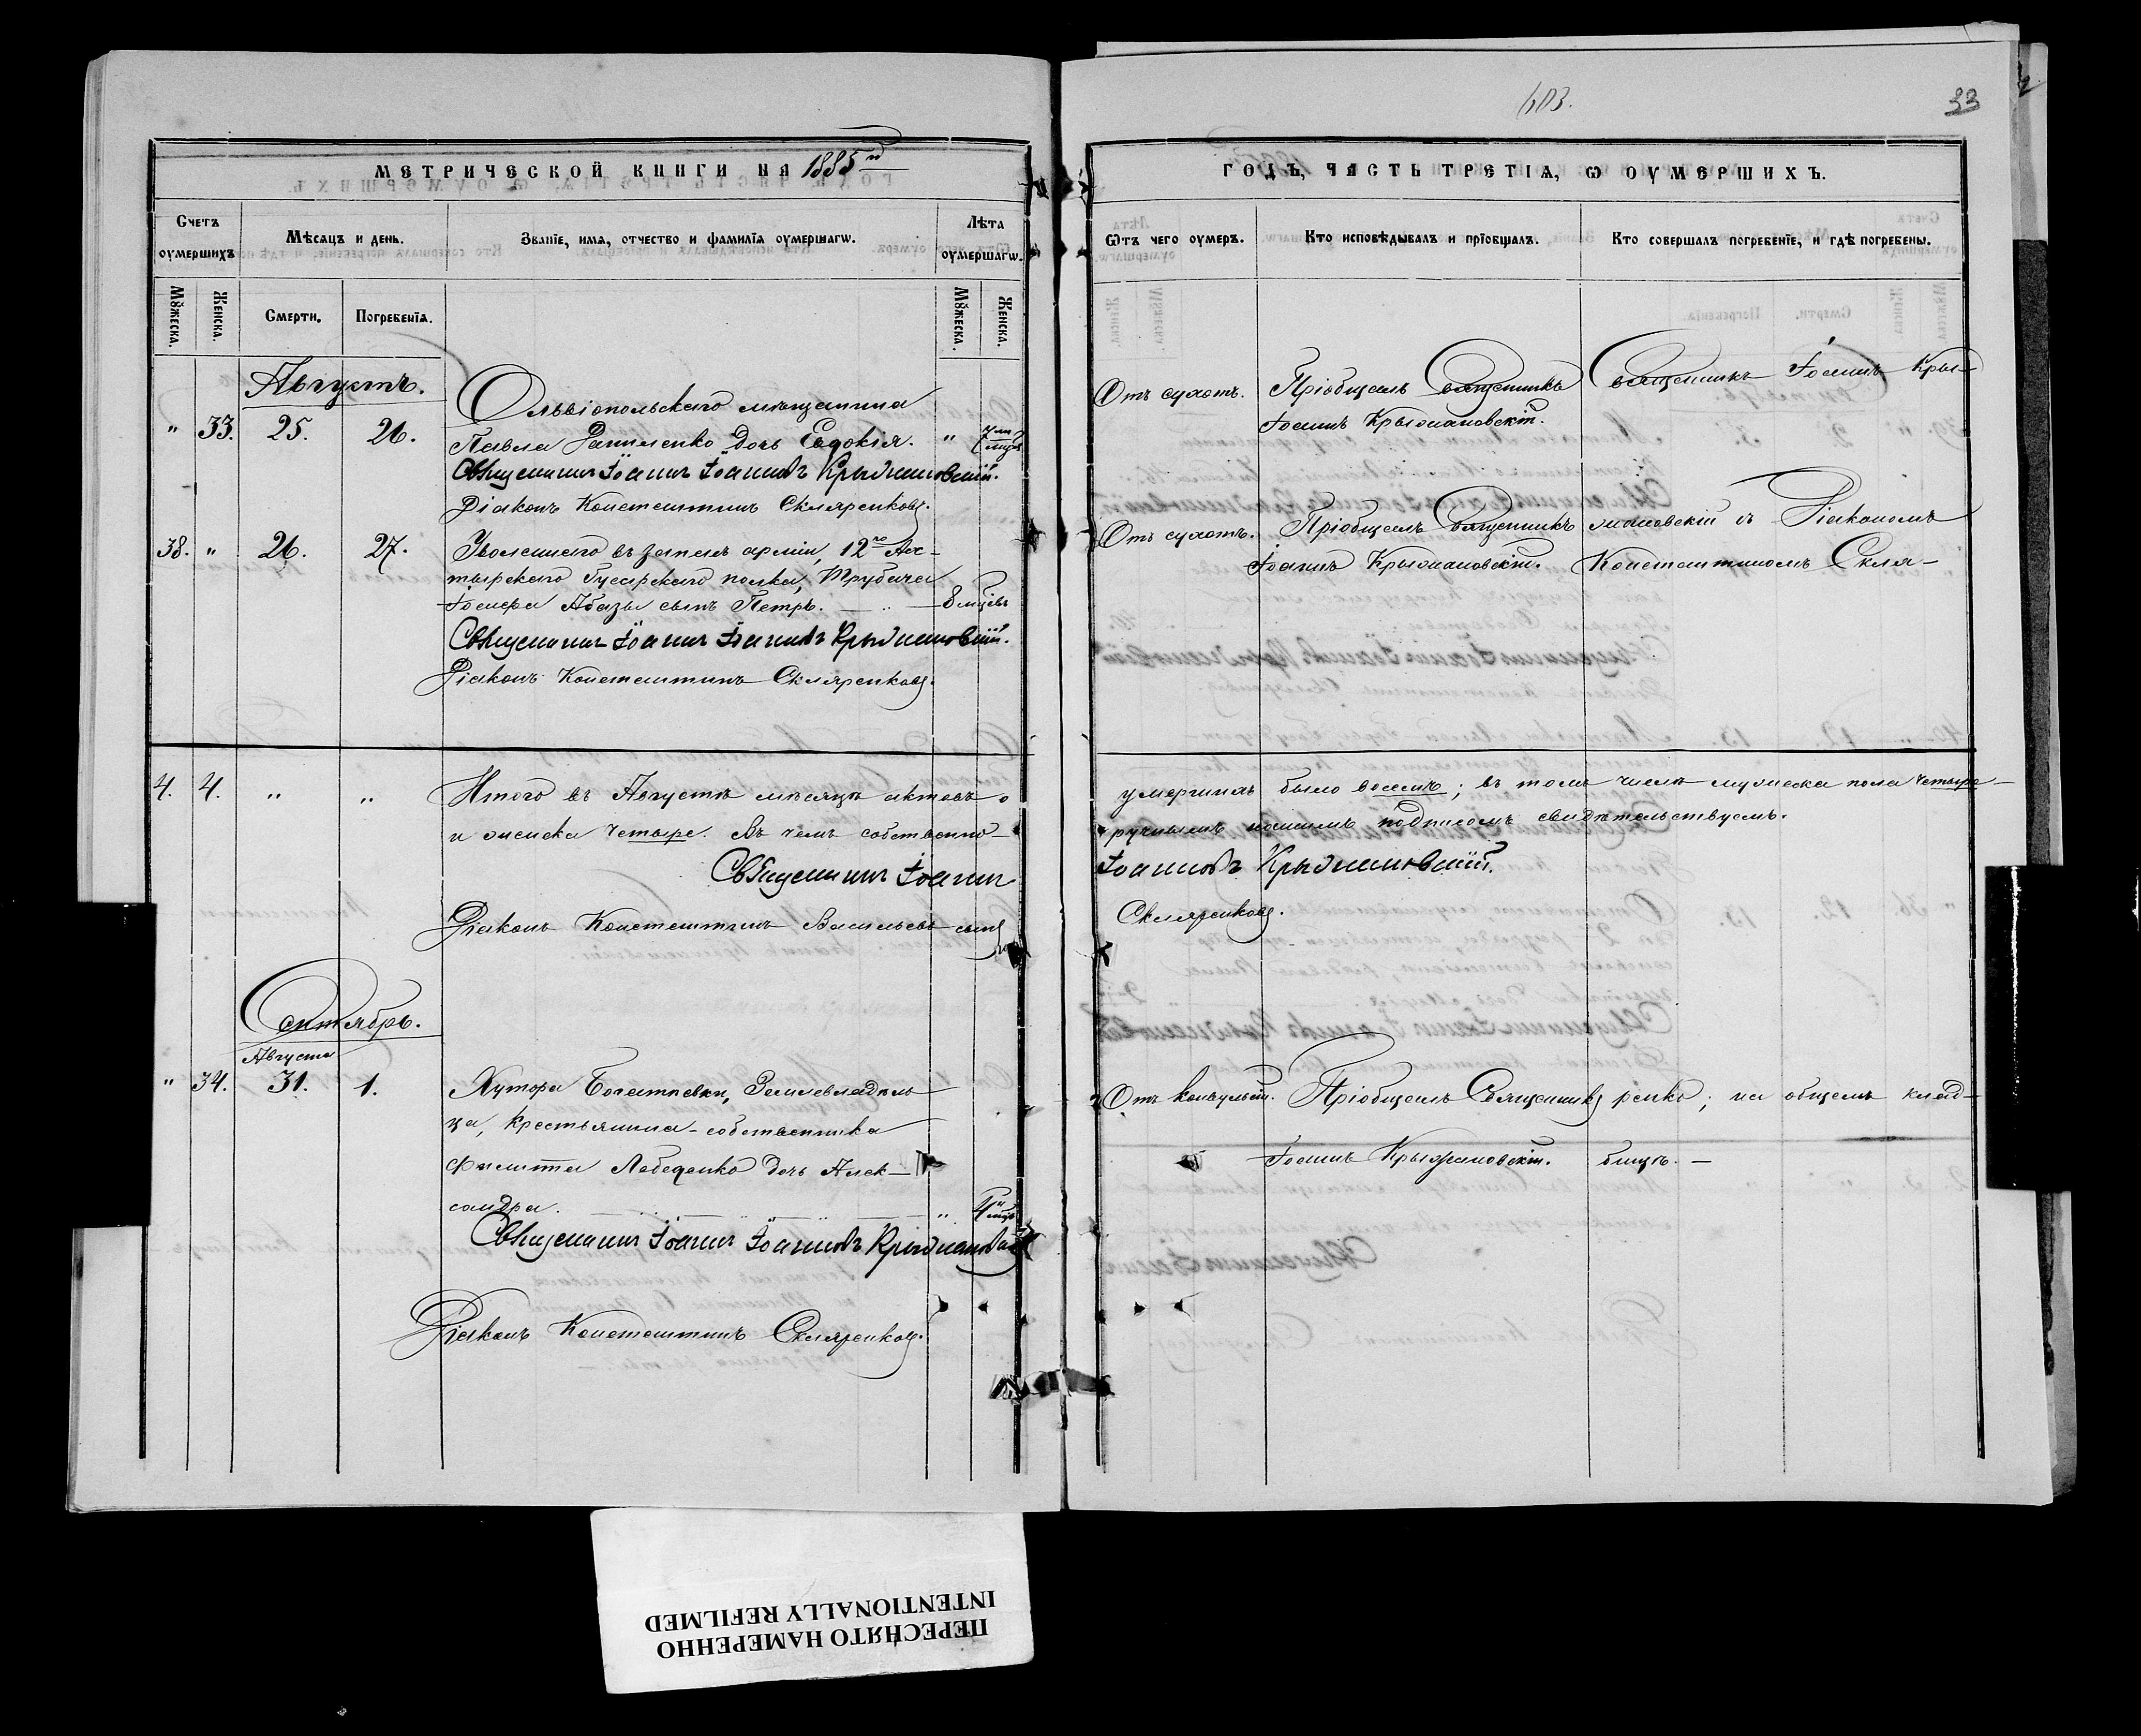 603.
33
МЕТРИЧЕСКОЙ КНИГИ НА 1885й
ГОДЪ, ЧАСТЬ ТРЕТІѦ, Ѡ ОУМЕРШИХЪ.
Счетъ оумершихъ
Мѣсяцъ и день.
Званіе, имя, отчество и фамиліа оумершагѡ.
Лѣта оумершагѡ.
Ѡтъ чего оумеръ.
Кто исповѣдывалъ и пріобщалъ.
Кто совершалъ погребеніе, и гдѣ погребены.
Мꙋжеска.
Женска.
Смерти.
Погребеніѧ.
Мꙋжеска.
Женска.
Августъ.
" 33. 25. 26.
Ольвіопольскаго мѣщанина
Павла дочь Евдокія. "
Священникъ Іоаннъ Іоанновъ Крыжановскій.
Діаконъ Константинъ Скляренковъ.
Отъ сухотъ.
Пріобщалъ Священникъ
Іоаннъ Крыжановскій.
Священникъ Іоаннъ Кры-
38. " 26. 27.
Уволеннаго въ запасъ арміи, 12го Ах-
тырскаго Гусарскаго полка, Трубача
Абазы сынъ Петръ. 8 мцевъ
Священникъ Іоаннъ Іоанновъ Крыжановскій.
Діаконъ Константинъ Скляренковъ.
Отъ сухотъ.
Пріобщалъ Священникъ
Іоаннъ Крыжановскій.
жановскій съ Діакономъ
Константиномъ Скля-
4. 4. " "
Итого въ Августѣ мѣсяцѣ актовъ о
умершихъ было восемь; въ томъ числѣ мужеска пола четыре
и женска четыре. Въ чемъ собственно-
ручнымъ нашимъ подписомъ свидѣтельствуемъ.
Священникъ Іоаннъ
Іоанновъ Крыжановскій.
Діаконъ Константинъ Васильевъ сынъ
Скляренковъ.
Сентябрь.
Августа
" 34. 31. 1.
Хутора Богатневки, Землевладѣль-
ца, крестьянина-собственника
Филиппа Лебеденко дочь Алек-
сандра. "
Священникъ Іоаннъ Іоанновъ Крыжановскій
Діаконъ Константинъ Скляренковъ.
Отъ конвульсій.
Пріобщалъ Священникъ
Іоаннъ Крыжановскій.
ренко; на общемъ клад-
бищѣ. —
ПЕРЕСНЯТО НАМЕРЕННО
INTENTIONALLY REFILMED